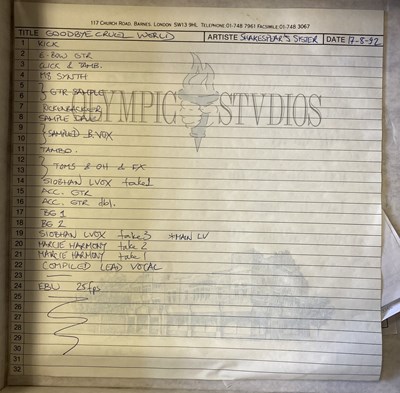 117 CHURCH ROAD, BARNES, LONDON SW13 9HL. TELEPHONE 01-748 7961 FACSIMILE 01-748 3067
TITLE GOODBYE CRUEL WORLD ARTISTE SHAKESPEAR'S SISTER DATE 17-8-92
OLYMPIC STVDIOS
1 KICK
2 E-BOW GTR
3 CLICK & TAMB.
4 M8 SYNTH
5
6 } GTR SAMPLE
7
8 SAMPLE
9
10 } SAMPLED B.VOX
11 TAMBO.
12
13 } TOMS & OH & FX
14 SIOBHAN LVOX take 1
15 ACC. GTR
16 ACC. GTR dbl.
17 BG 1
18 BG 2
19 SIOBHAN LVOX take 3 *MAIN LV
20 MARCIE HARMONY take 2
21 MARCIE HARMONY take 1
22 COMPILED LEAD VOCAL
23
24 EBU 25fps
25
26
27
28
29
30
31
32